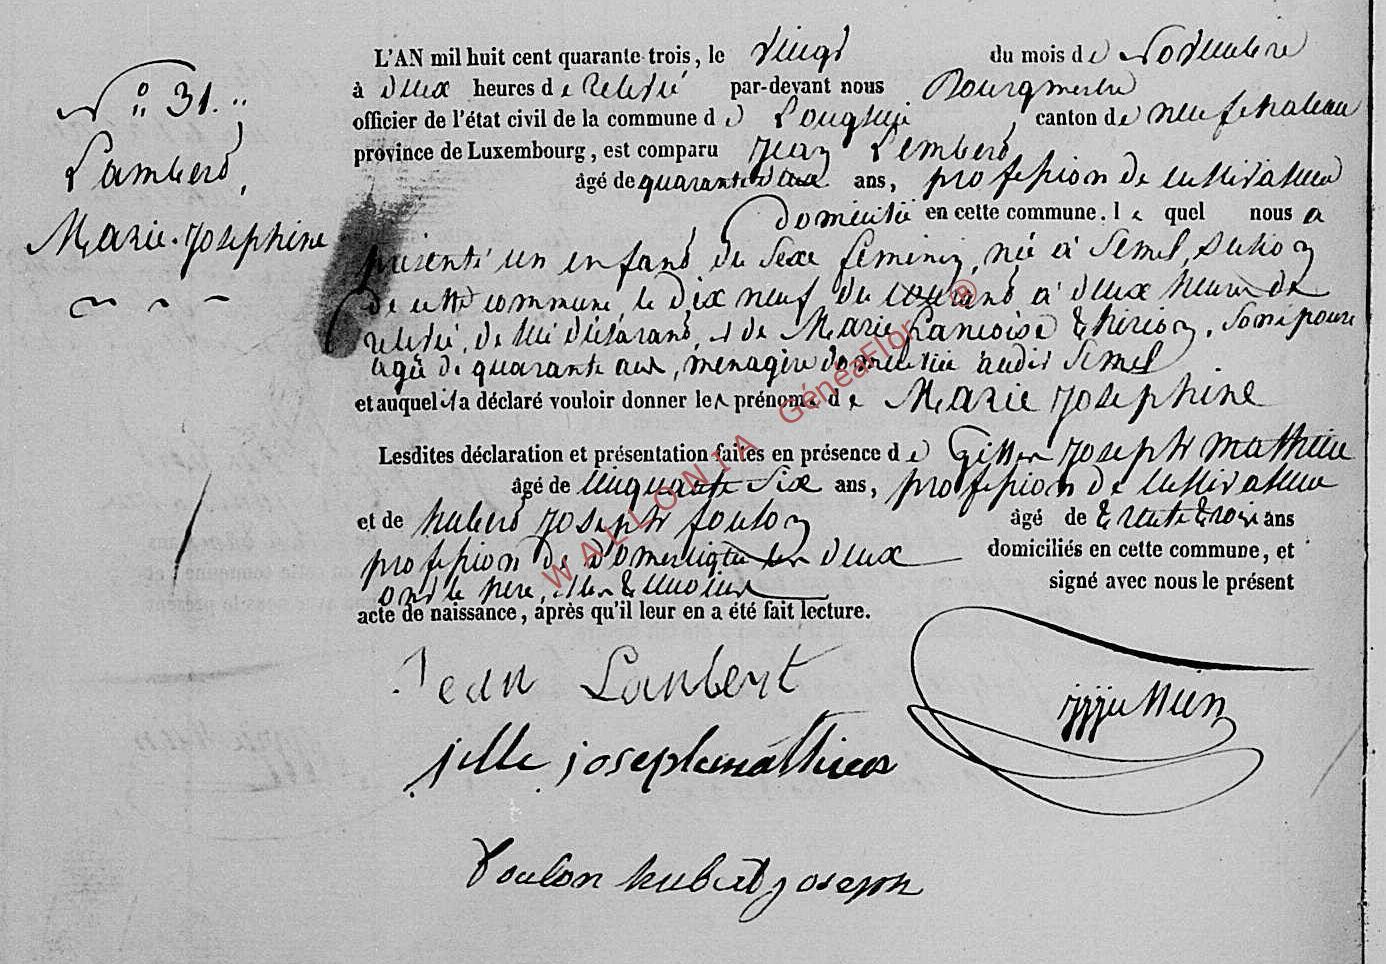 N° 31.
Lambert,
Marie-Josephine
L'AN mil huit cent quarante-trois, le vingt du mois de Novembre
à deux heures de relevée par-devant nous Bourgmestre
officier de l'état civil de la commune de Longlier, canton de neufchateau
province de Luxembourg, est comparu Jean Lambert
âgé de quarante deux ans, profession de cultivateur
domicilié en cette commune. le quel nous a
présenté un enfant du sexe feminin, née à Semel, section
de cette commune, le dix neuf du courant à deux heures de
relevée, de lui déclarant, et de Marie francoise thirion, son épouse
agée de quarante ans, menagère domiciliée audit Semel
et auquel il a déclaré vouloir donner les prénoms de Marie Josephine
Lesdites déclaration et présentation faites en présence de Gille Joseph mathieu
âgé de cinquante six ans, profession de cultivateur
et de hubert Joseph foulon âgé de trente trois ans
profession de domestique tous deux domiciliés en cette commune, et
ont le père, et les temoins signé avec nous le présent
acte de naissance, après qu'il leur en a été fait lecture.
Jean Lambert
jille joseph mathieu
foulon hubert joseph
WALLONIA GénéaFlor ®